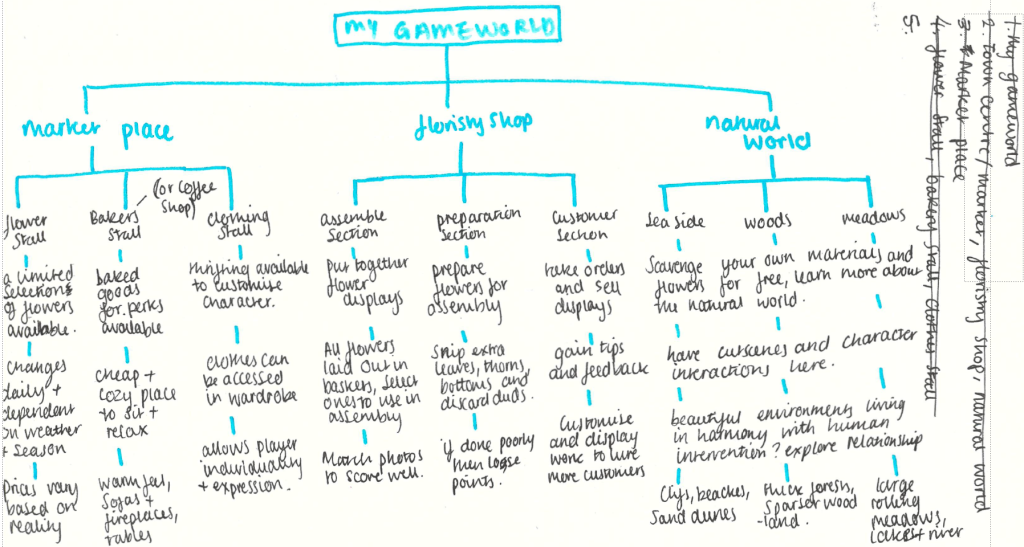 MY GAMEWORLD
market place
floristry shop
natural
world
flower
stall
Bakers
stall
(or coffee
shop)
clothing
stall
assemble
section
preparation
section
customer
section
sea side
woods
meadows
a limited
selections
of flowers
available.
changes
daily +
dependent
on weather
+ season
Prices vary
based on
reality
baked
goods
for perks
available
cheap +
cozy place
to sit +
relax
warm feel,
sofas +
fireplaces,
tables
thrifting available
to customise
character.
clothes can
be accessed
in wardrobe
allows player
individuality
+ expression.
put together
flower
displays
All flowers
laid out in
baskets, select
ones to use in
assembly
Match photos
to score well.
prepare
flowers for
assembly
Snip extra
leaves, thorns,
bottoms and
discard duds.
if done poorly
then loose
points.
take orders
and sell
displays
gain tips
and feedback
Customise
and display
work to lure
more customers
Scavenge your own materials and
flowers for free, learn more about
the natural world.
have cutscenes and character
interactions here.
beautiful environments living
in harmony with human
intervention? explore relationship
Cliffs, beaches,
sand dunes
thick forests,
sparser wood
-land.
large
rolling
meadows,
lakes + river
1. My gameworld
2. Town centre/market, floristry shop, natural world
3. Market place
4. flower stall, bakery stall, clothes stall
5.